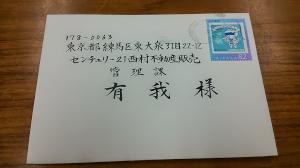 178-0063
東京都練馬区東大泉3丁目22-12
センチュリー21西村不動産販売
管理課
有我様
82